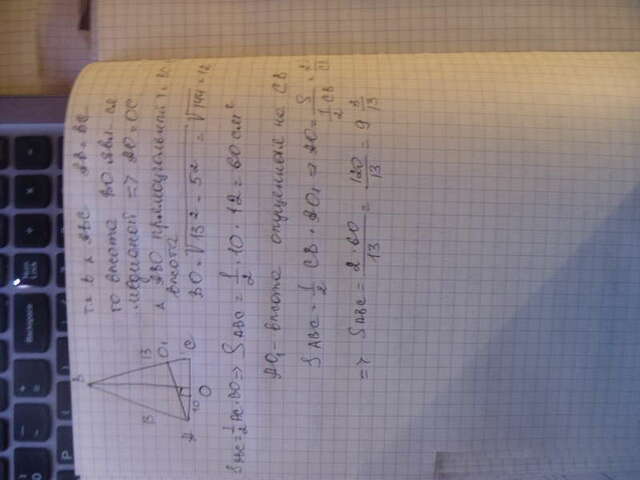 т.к. в Δ ABC AB = BC
то высота BO явл-ся
медианой => AO = OC
Δ ABO прямоугольный т.к. BO
высота
BO = √13² - 5² = √144 = 12
B
13
13
O₁
A
10
O
C
S ABC = 1/2 AC · BO => S ABC = 1/2 · 10 · 12 = 60 см²
AO₁ - высота опущенная на CB
S ABC = 1/2 CB · AO₁ => AO = S / 1/2 CB = 2
=> S ABC = 2 · 60 / 13 = 120 / 13 = 9 3/13
Backspace
Lock